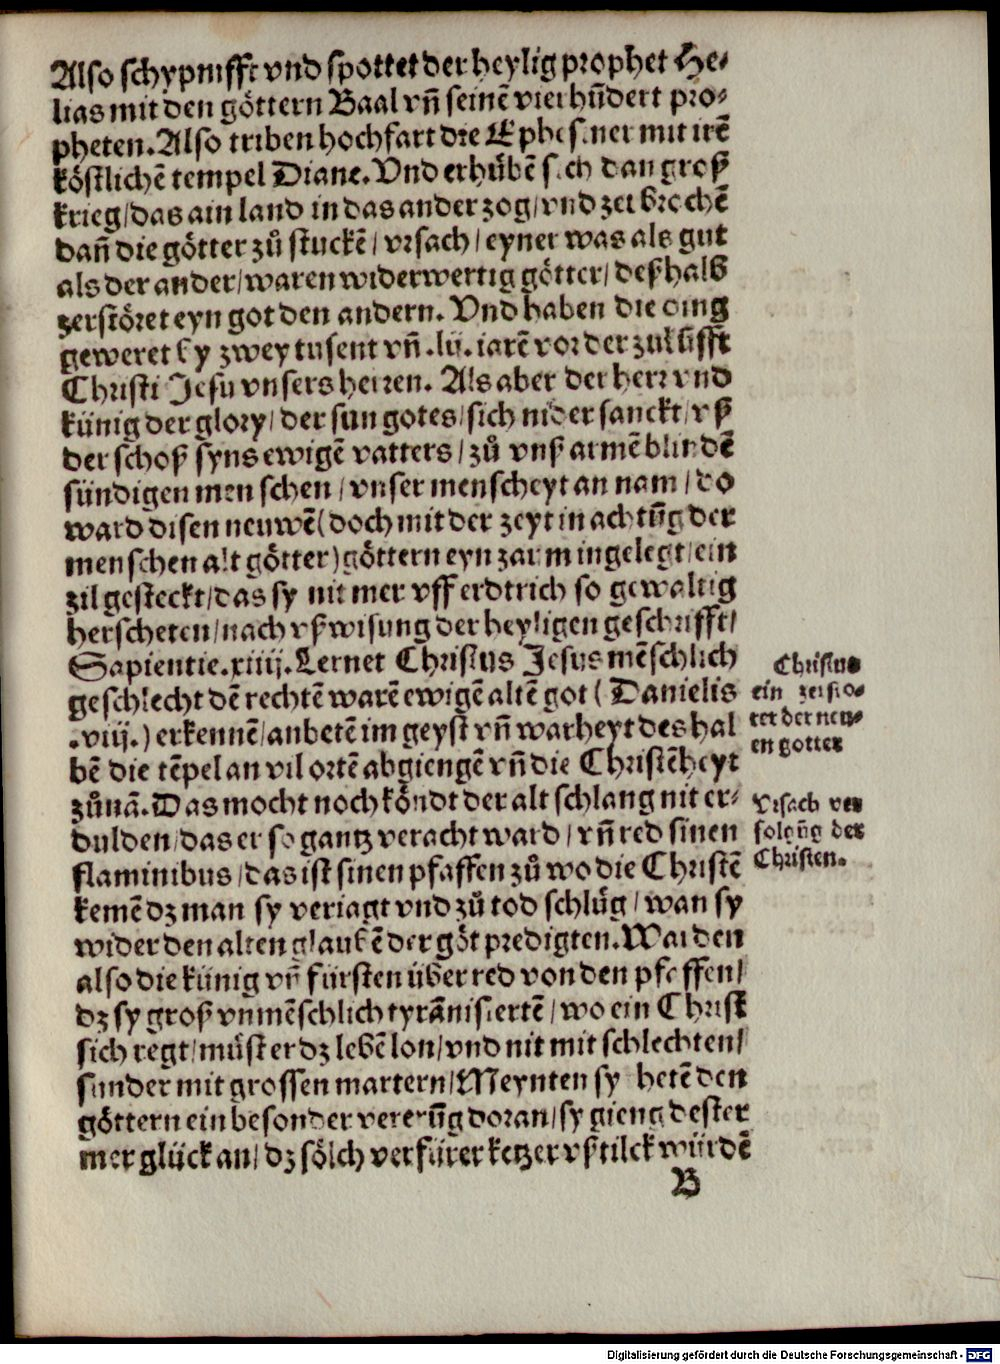 Also schypnifft vnd spottet der heylig prophet He-
lias mit den göttern Baal vn̄ seinē vier hūdert pro-
pheten. Also triben hochfart die Ephesiner mit irē
köstlichē tempel Diane. Vnd erhůbē sich dan groß
krieg/das ain land in das ander zog/vnd zerbrochē
dan̄ die götter zů stuckē/vrsach/eyner was als gut
als der ander/waren widerwertig götter/deßhalb
zerstöret eyn got den andern. Vnd haben die ding
geweret by zwey tusent vn̄ .lij. iarē vor der zukunfft
Christi Jesu vnsers herren. Als aber der herr vnd
künig der glory/der sun gotes/sich nider sanckt/vß
der schoß syns ewigē vatters/zů vnß armē blindē
sündigen menschen/vnser menscheyt an nam/do
ward disen neuwē(doch mit der zeyt in achtūg der
menschen alt götter)göttern eyn zaum ingelegt/ein
zil gesteckt/das sy nit mer vff erdtrich so gewaltig
herscheten/nach vßwisung der heyligen geschrifft/
Sapientie.xiiij. Lernet Christus Jesus mēschlich
geschlecht dē rechtē warē ewigē altē got (Danielis
.viij.) erkennē/anbetē im geyst vn̄ warheyt des hal
bē die tēpel an vil ortē abgiengē vn̄ die Christēheyt
zůnā. Das mocht noch köndt der alt schlang nit er-
dulden/das er so gantz veracht ward/vn̄ red sinen
flaminibus/das ist sinen pfaffen zů wo die Christē
kemē dz man sy veriagt vnd zů tod schlůg/wan sy
wider den alten glaubē der göt predigten. Warden
also die künig vn̄ fürsten über red von den pfaffen/
dz sy groß vnmēschlich tyrānisiertē/wo ein Christ
sich regt/můst er dz lebē lon/vnd nit mit schlechten/
sunder mit grossen martern/Meynten sy hetē den
göttern ein besonder vererūg doran/sy gieng dester
mer glück an/dz sölch verfürer ketzer vßtilckt würdē
B
Christus
ein zersto-
rer der neu-
en gotter
Vrsach ver
folgūg der
Christen.
Digitalisierung gefördert durch die Deutsche Forschungsgemeinschaft - DFG